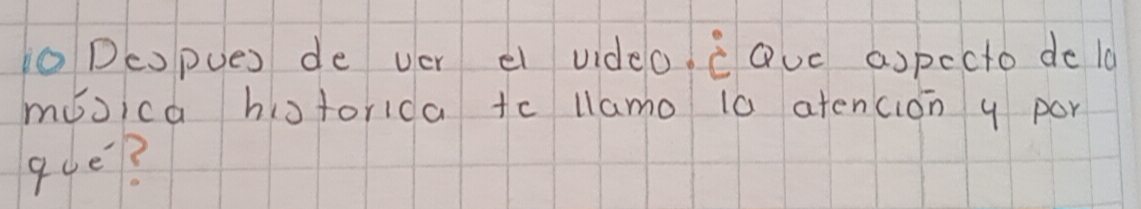 10 Despues de ver el video. ¿Que aspecto de la
música historica te llamo la atención y por
qué?